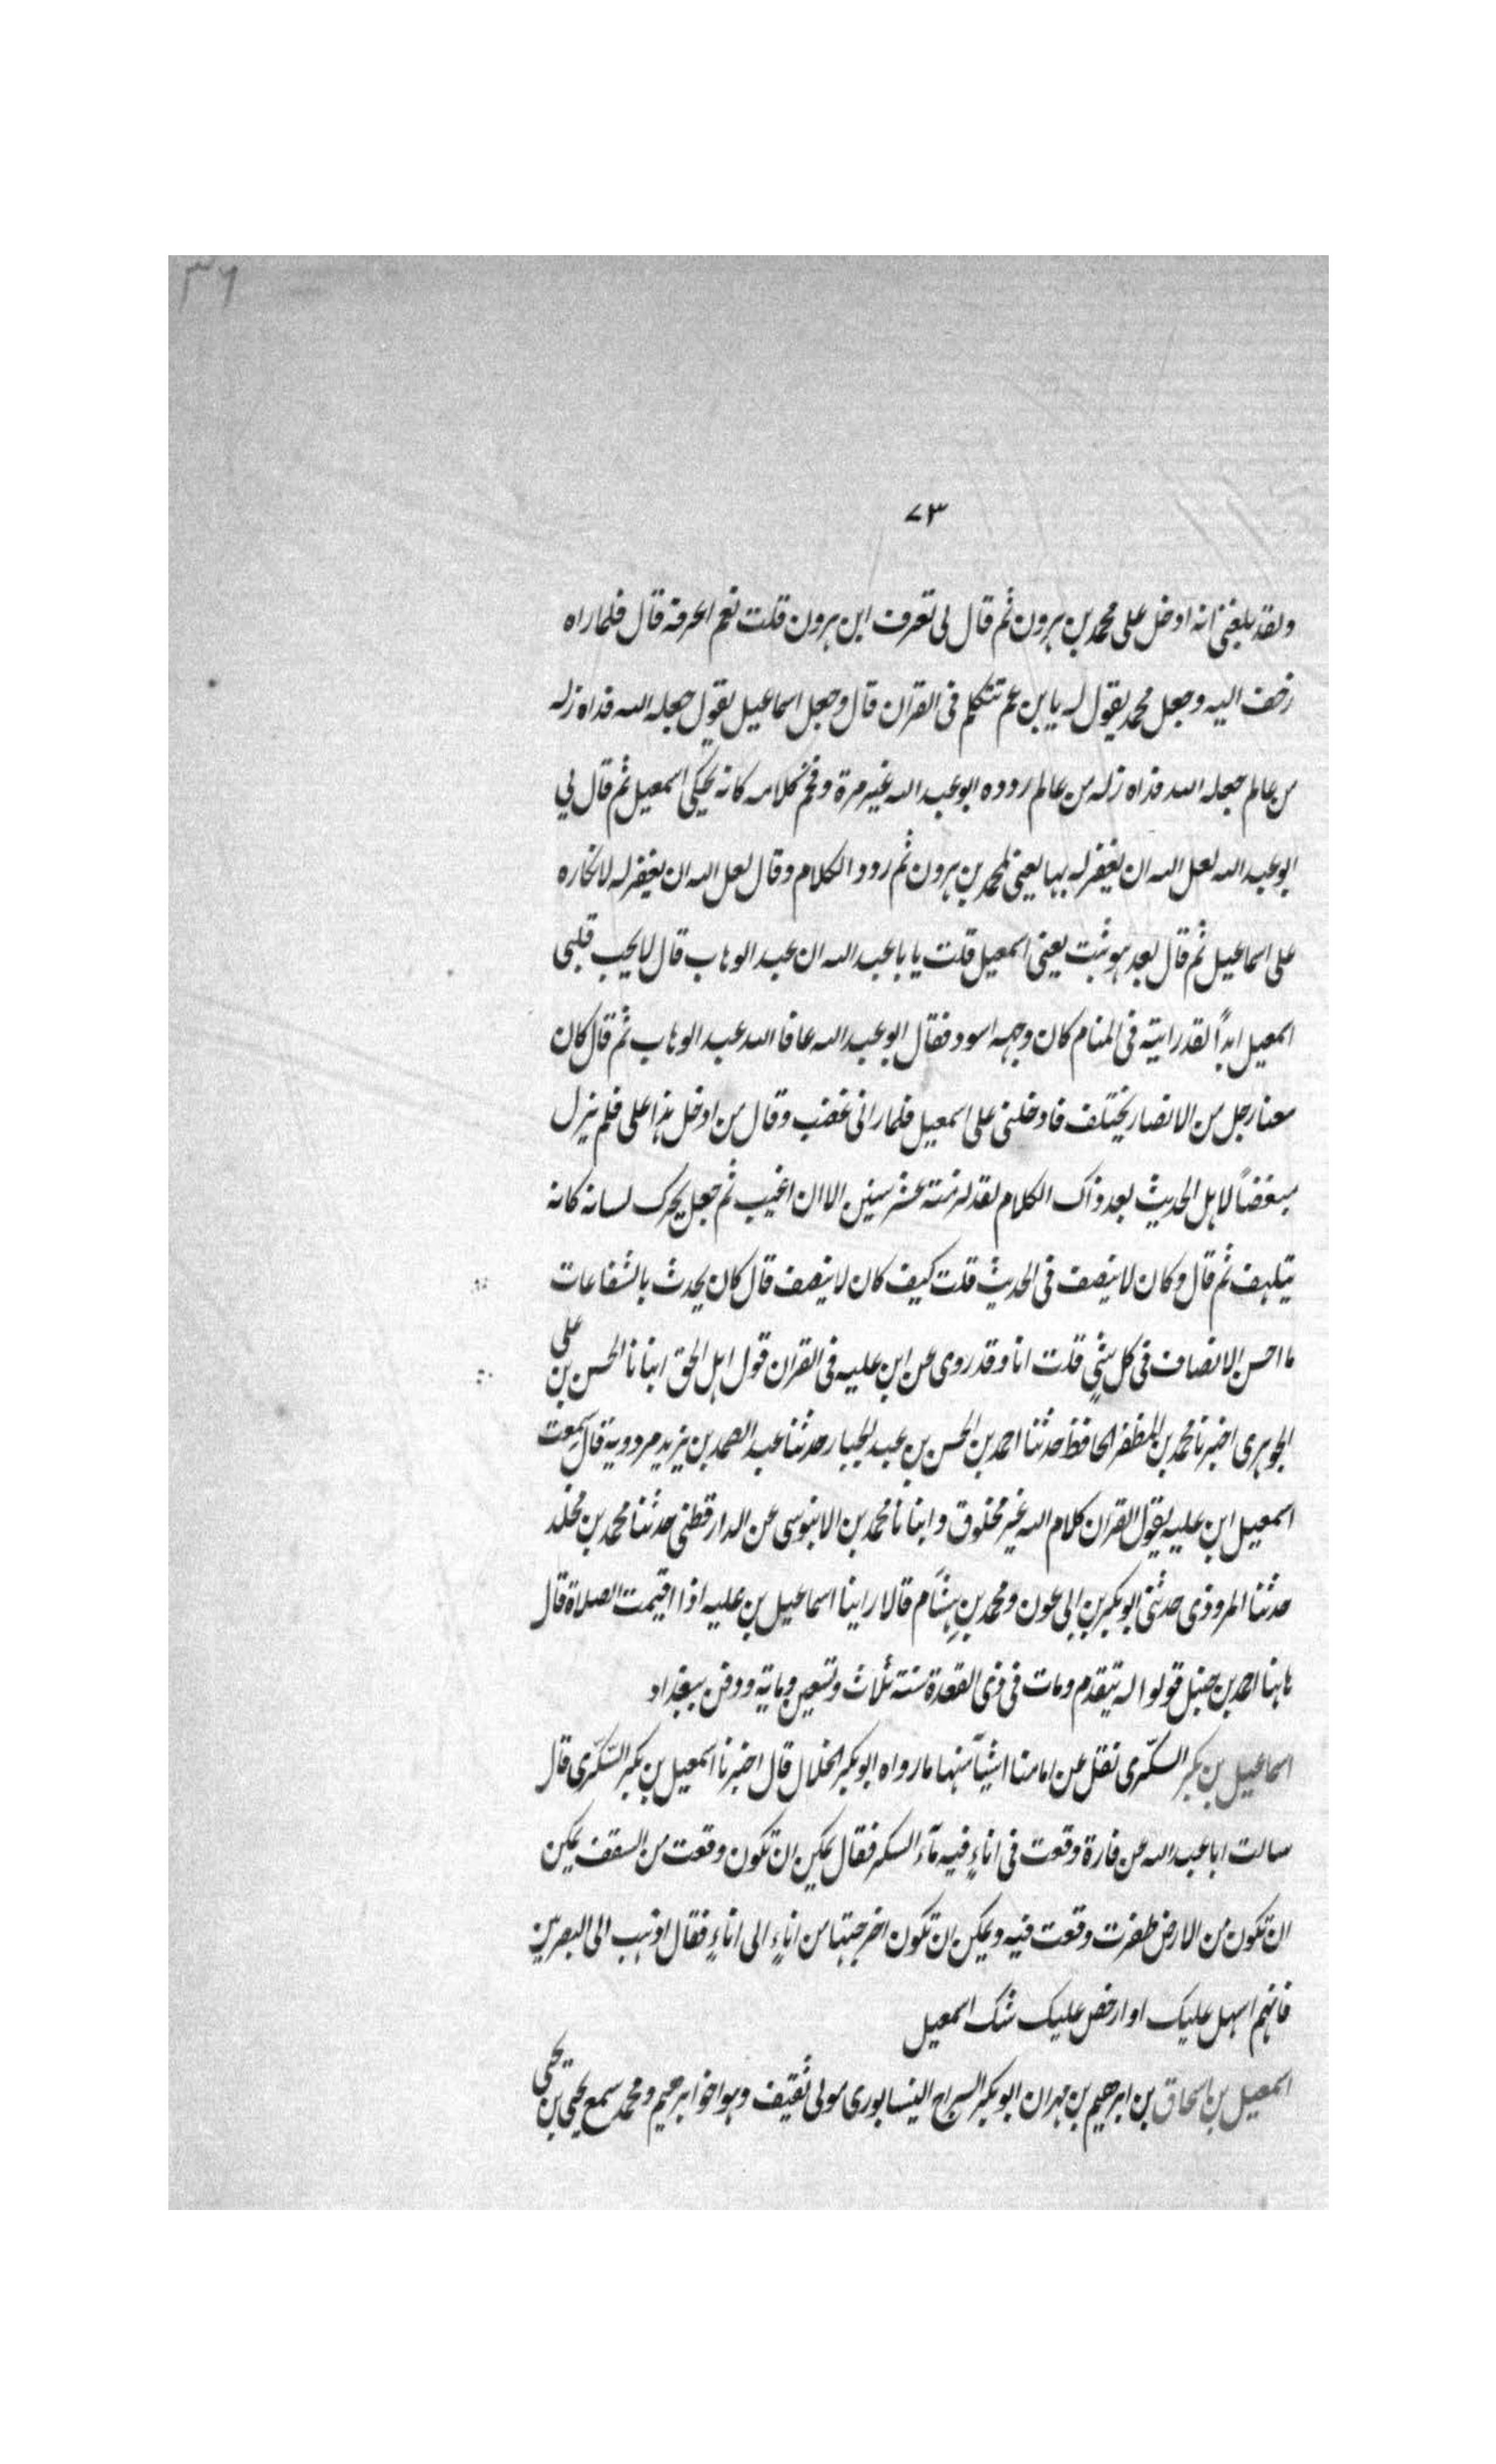 ٣٦
٧٣
ولقد بلغنى انه ادخل على محمد بن هرون ثم قال لى تعرف ابن هرون قلت نعم اعرفه قال فلما راه
زحف اليه وجعل محمد يقول له يا بن عم تتكلم فى القران قال وجعل اسماعيل يقول جعله الله فداه زله
من عالم جعله الله فداه زله من عالم ردده ابو عبد الله غير مرة وفخم كلامه كانه يحكى اسمعيل ثم قال لي
ابو عبد الله لعل الله ان يغفر له بها يعنى لمحمد بن هرون ثم ردد الكلام وقال لعل الله ان يغفر له لانكاره
على اسماعيل ثم قال بعد هو ثبت يعنى اسمعيل قلت يا با عبد الله ان عبد الوهاب قال لا يحب قلبى
اسمعيل ابداً لقد رايته فى المنام كان وجهه اسود فقال ابو عبد الله عافا الله عبد الوهاب ثم قال كان
معنا رجل من الانصار يختلف فادخلنى على اسمعيل فلما رانى غضب وقال من ادخل هذا على فلم يزل
مبغضاً لاهل الحديث بعد ذاك الكلام لقد لزمته عشر سنين الا ان اغيب ثم جعل يحرك لسانه كانه
يتلهف ثم قال وكان لا ينصف فى الحديث قلت كيف كان لا ينصف قال كان يحدث بالشفاعات
ما احسن الانصاف فى كل شئٍ قلت انا وقد روى عن ابن عليه فى القران قول اهل الحق انبانا الحسن بن على
الجوهرى اخبرنا محمد بن المظفر الحافظ حدثنا احمد بن الحسن بن عبد الجبار حدثنا عبد الصمد بن يزيد مردويه قال سمعت
اسمعيل ابن عليه يقول القران كلام الله غير مخلوق وانبانا محمد بن الابنوسى عن الدارقطنى حدثنا محمد بن مخلد
حدثنا المروذى حدثنى ابو بكر بن ابى عون ومحمد بن هشام قالا راينا اسماعيل بن عليه اذا اقيمت الصلاة قال
ها هنا احمد بن حنبل قولوا له يتقدم ومات فى ذى القعدة سنة ثلاث وتسعين وماية ودفن ببغداد
اسماعيل بن بكر السكّرى نقل عن امامنا اشيآ منها ما رواه ابو بكر الخلال قال اخبرنا اسمعيل بن بكر السّكّرى قال
سالت ابا عبد الله عن فارة وقعت فى اناءٍ فيه مآء السكر فقال يمكن ان تكون وقعت من السقف يمكن
ان تكون من الارض ظفرت وقعت فيه ويمكن ان تكون اخرجتها من اناءٍ الى اناءٍ فقال اذهب الى البصريين
فانهم اسهل عليك او ارخص عليك شك اسمعيل
اسمعيل بن اسحاق بن ابرهيم بن مهران ابو بكر السراج النيسابورى مولى ثقيف وهو اخو ابرهيم ومحمد سمع يحيى بن يحيى